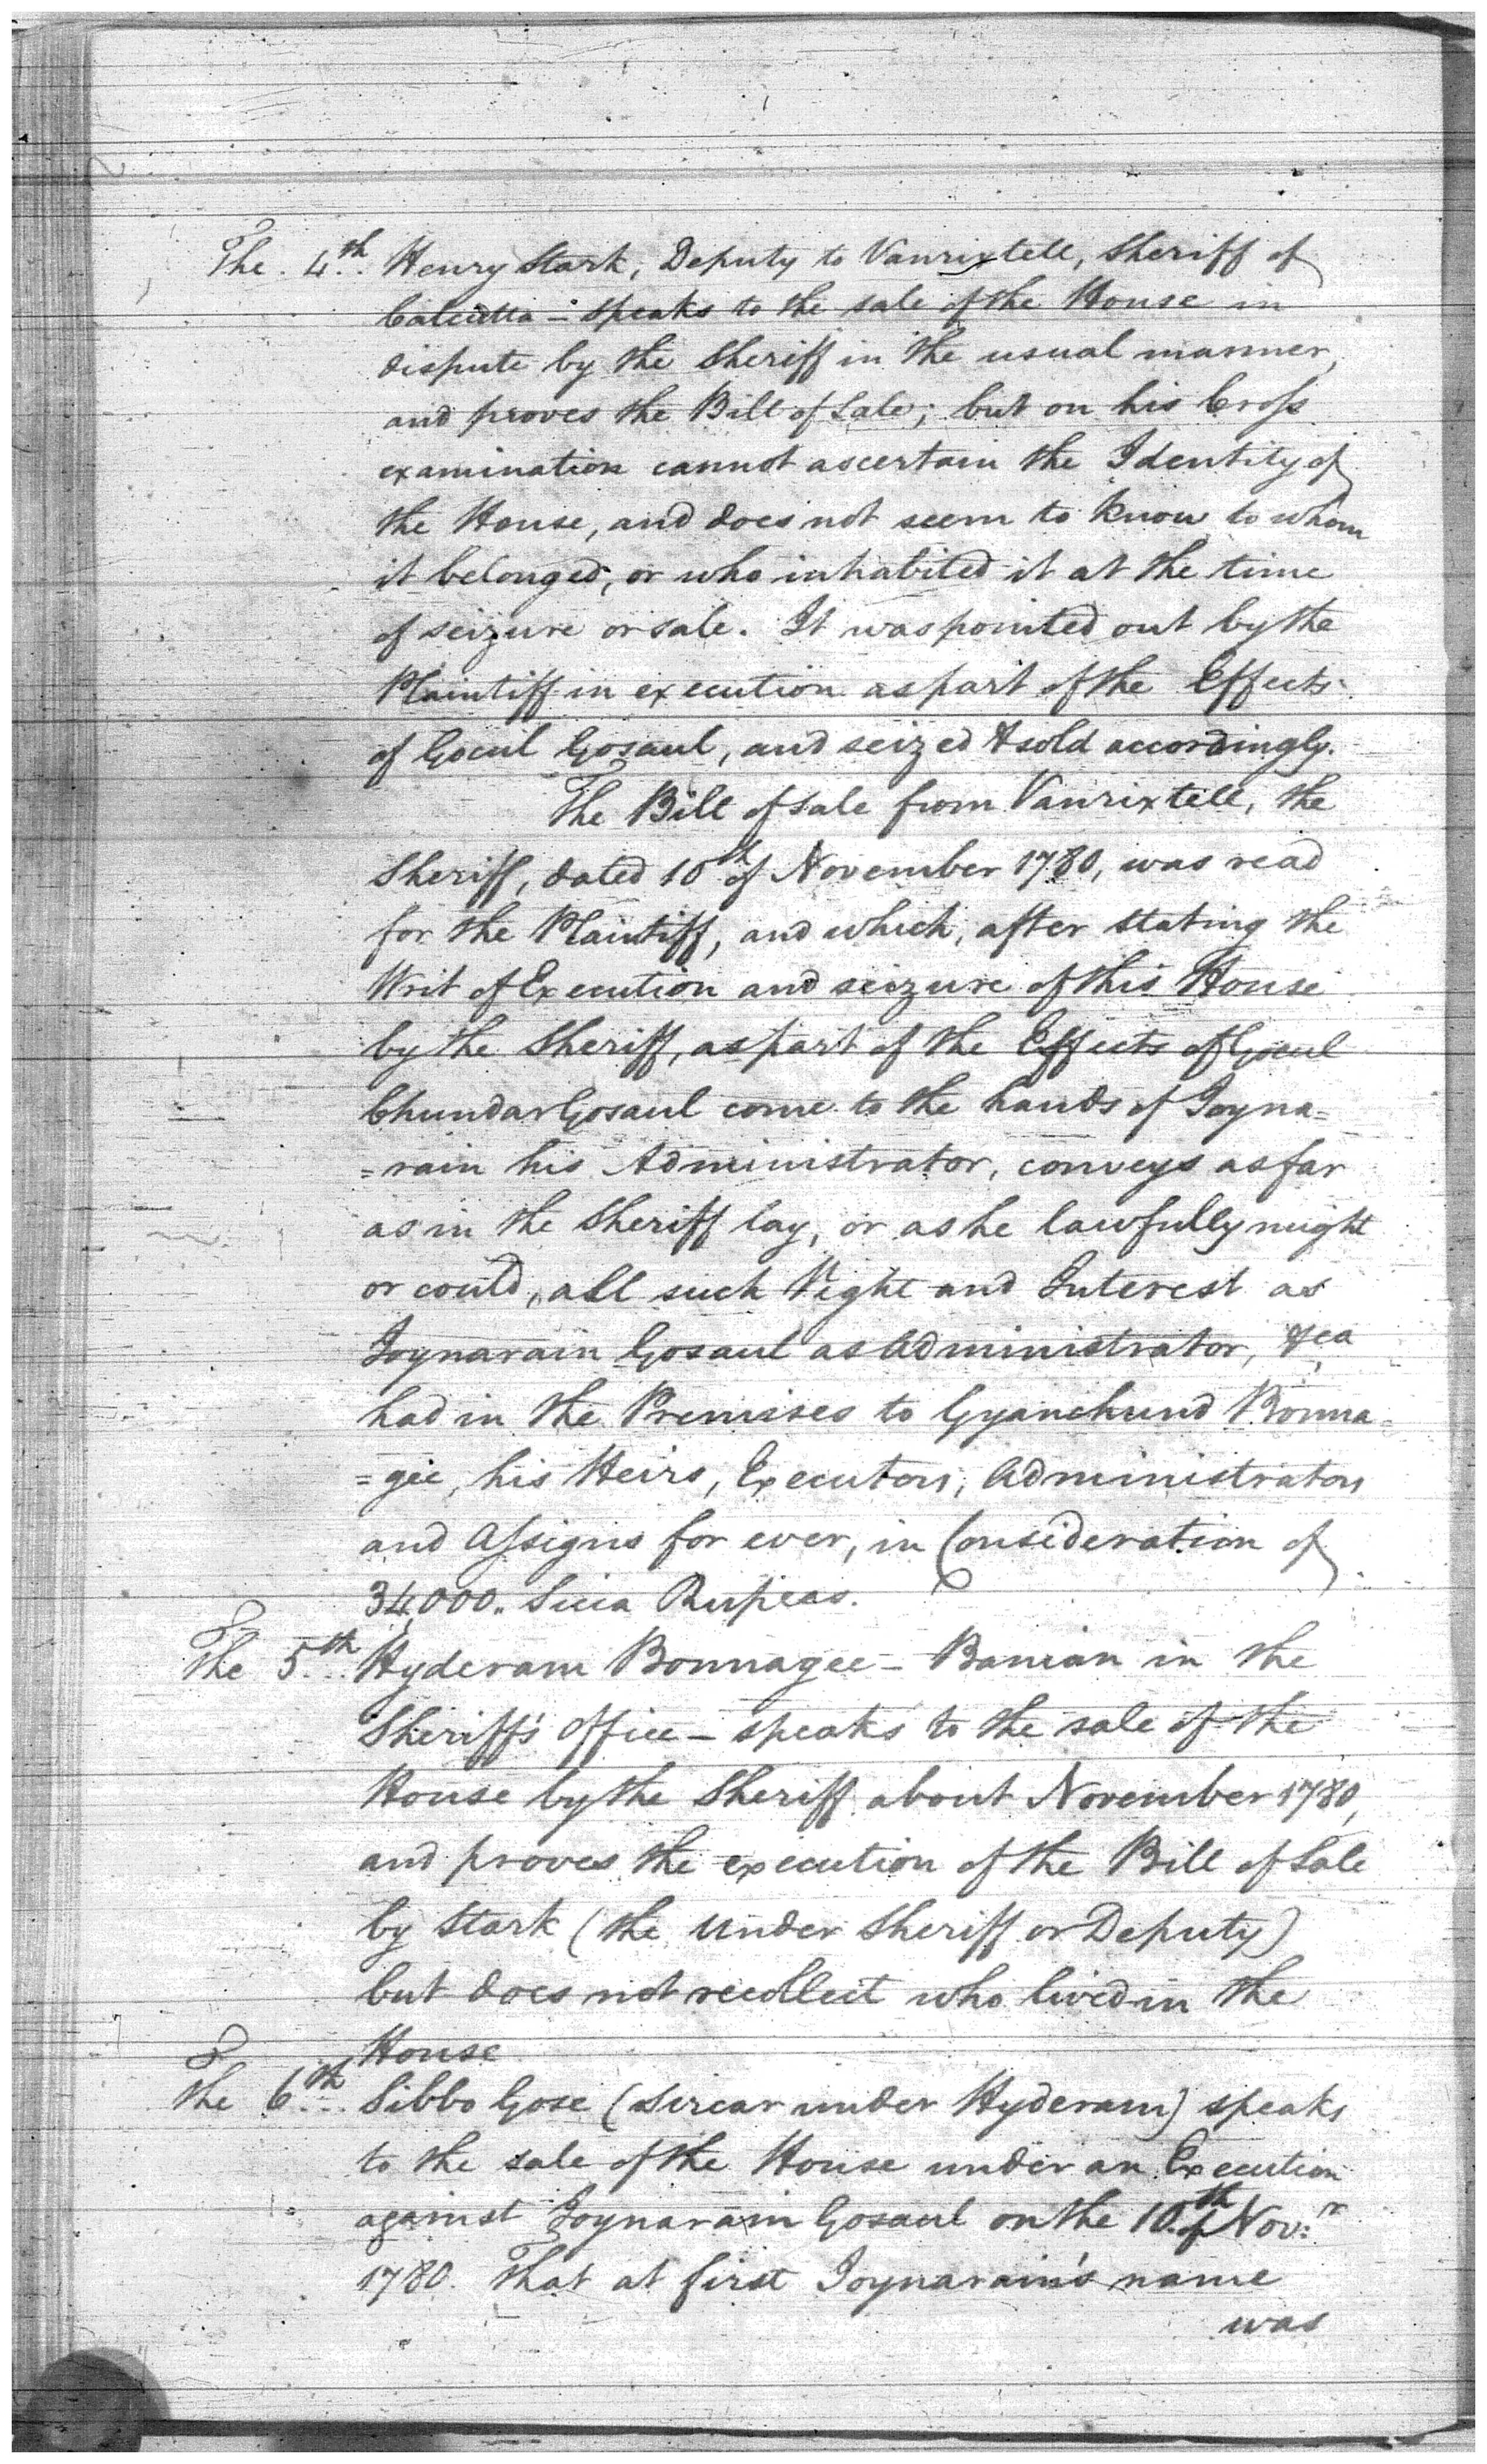 The 4th Henry Stark, Deputy to Vanrixtell, Sheriff of
Calcutta - speaks to the sale of the House in
dispute by the Sheriff in the usual manner,
and proves the Bill of Sale; but on his Cross
examination cannot ascertain the Identity of
the House, and does not seem to know to whom
it belonged, or who inhabited it at the time
of seizure or sale. It was pointed out by the
Plaintiff in execution as part of the Effects
of Gocul Gosaul, and seized & sold accordingly.
The Bill of Sale from Vanrixtell, the
Sheriff, dated 10th of November 1780, was read
for the Plaintiff, and which, after stating the
Writ of Execution and seizure of this House
by the Sheriff, as part of the Effects of Gocul
Chundar Gosaul come to the hands of Joyna=
=rain his Administrator, conveys as far
as in the Sheriff lay, or as he lawfully might
or could, all such Right and Interest as
Joynarain Gosaul as Administrator, &ca
had in the Premises to Gyanchund Bonna=
=gee, his Heirs, Executors, Administrators
and Assigns for ever, in Consideration of
34,000,, Sicca Rupees.
The 5th Hyderam Bonnagee - Banian in the
Sheriff's Office - speaks to the sale of the
House by the Sheriff about November 1780,
and proves the execution of the Bill of Sale
by Stark (the Under Sheriff or Deputy)
but does not recollect who lived in the
House
The 6th Sibbo Gose (Sircar under Hyderam) speaks
to the sale of the House under an Execution
against Joynarain Gosaul on the 10th of Nov:r
1780. That at first Joynarain's name
was